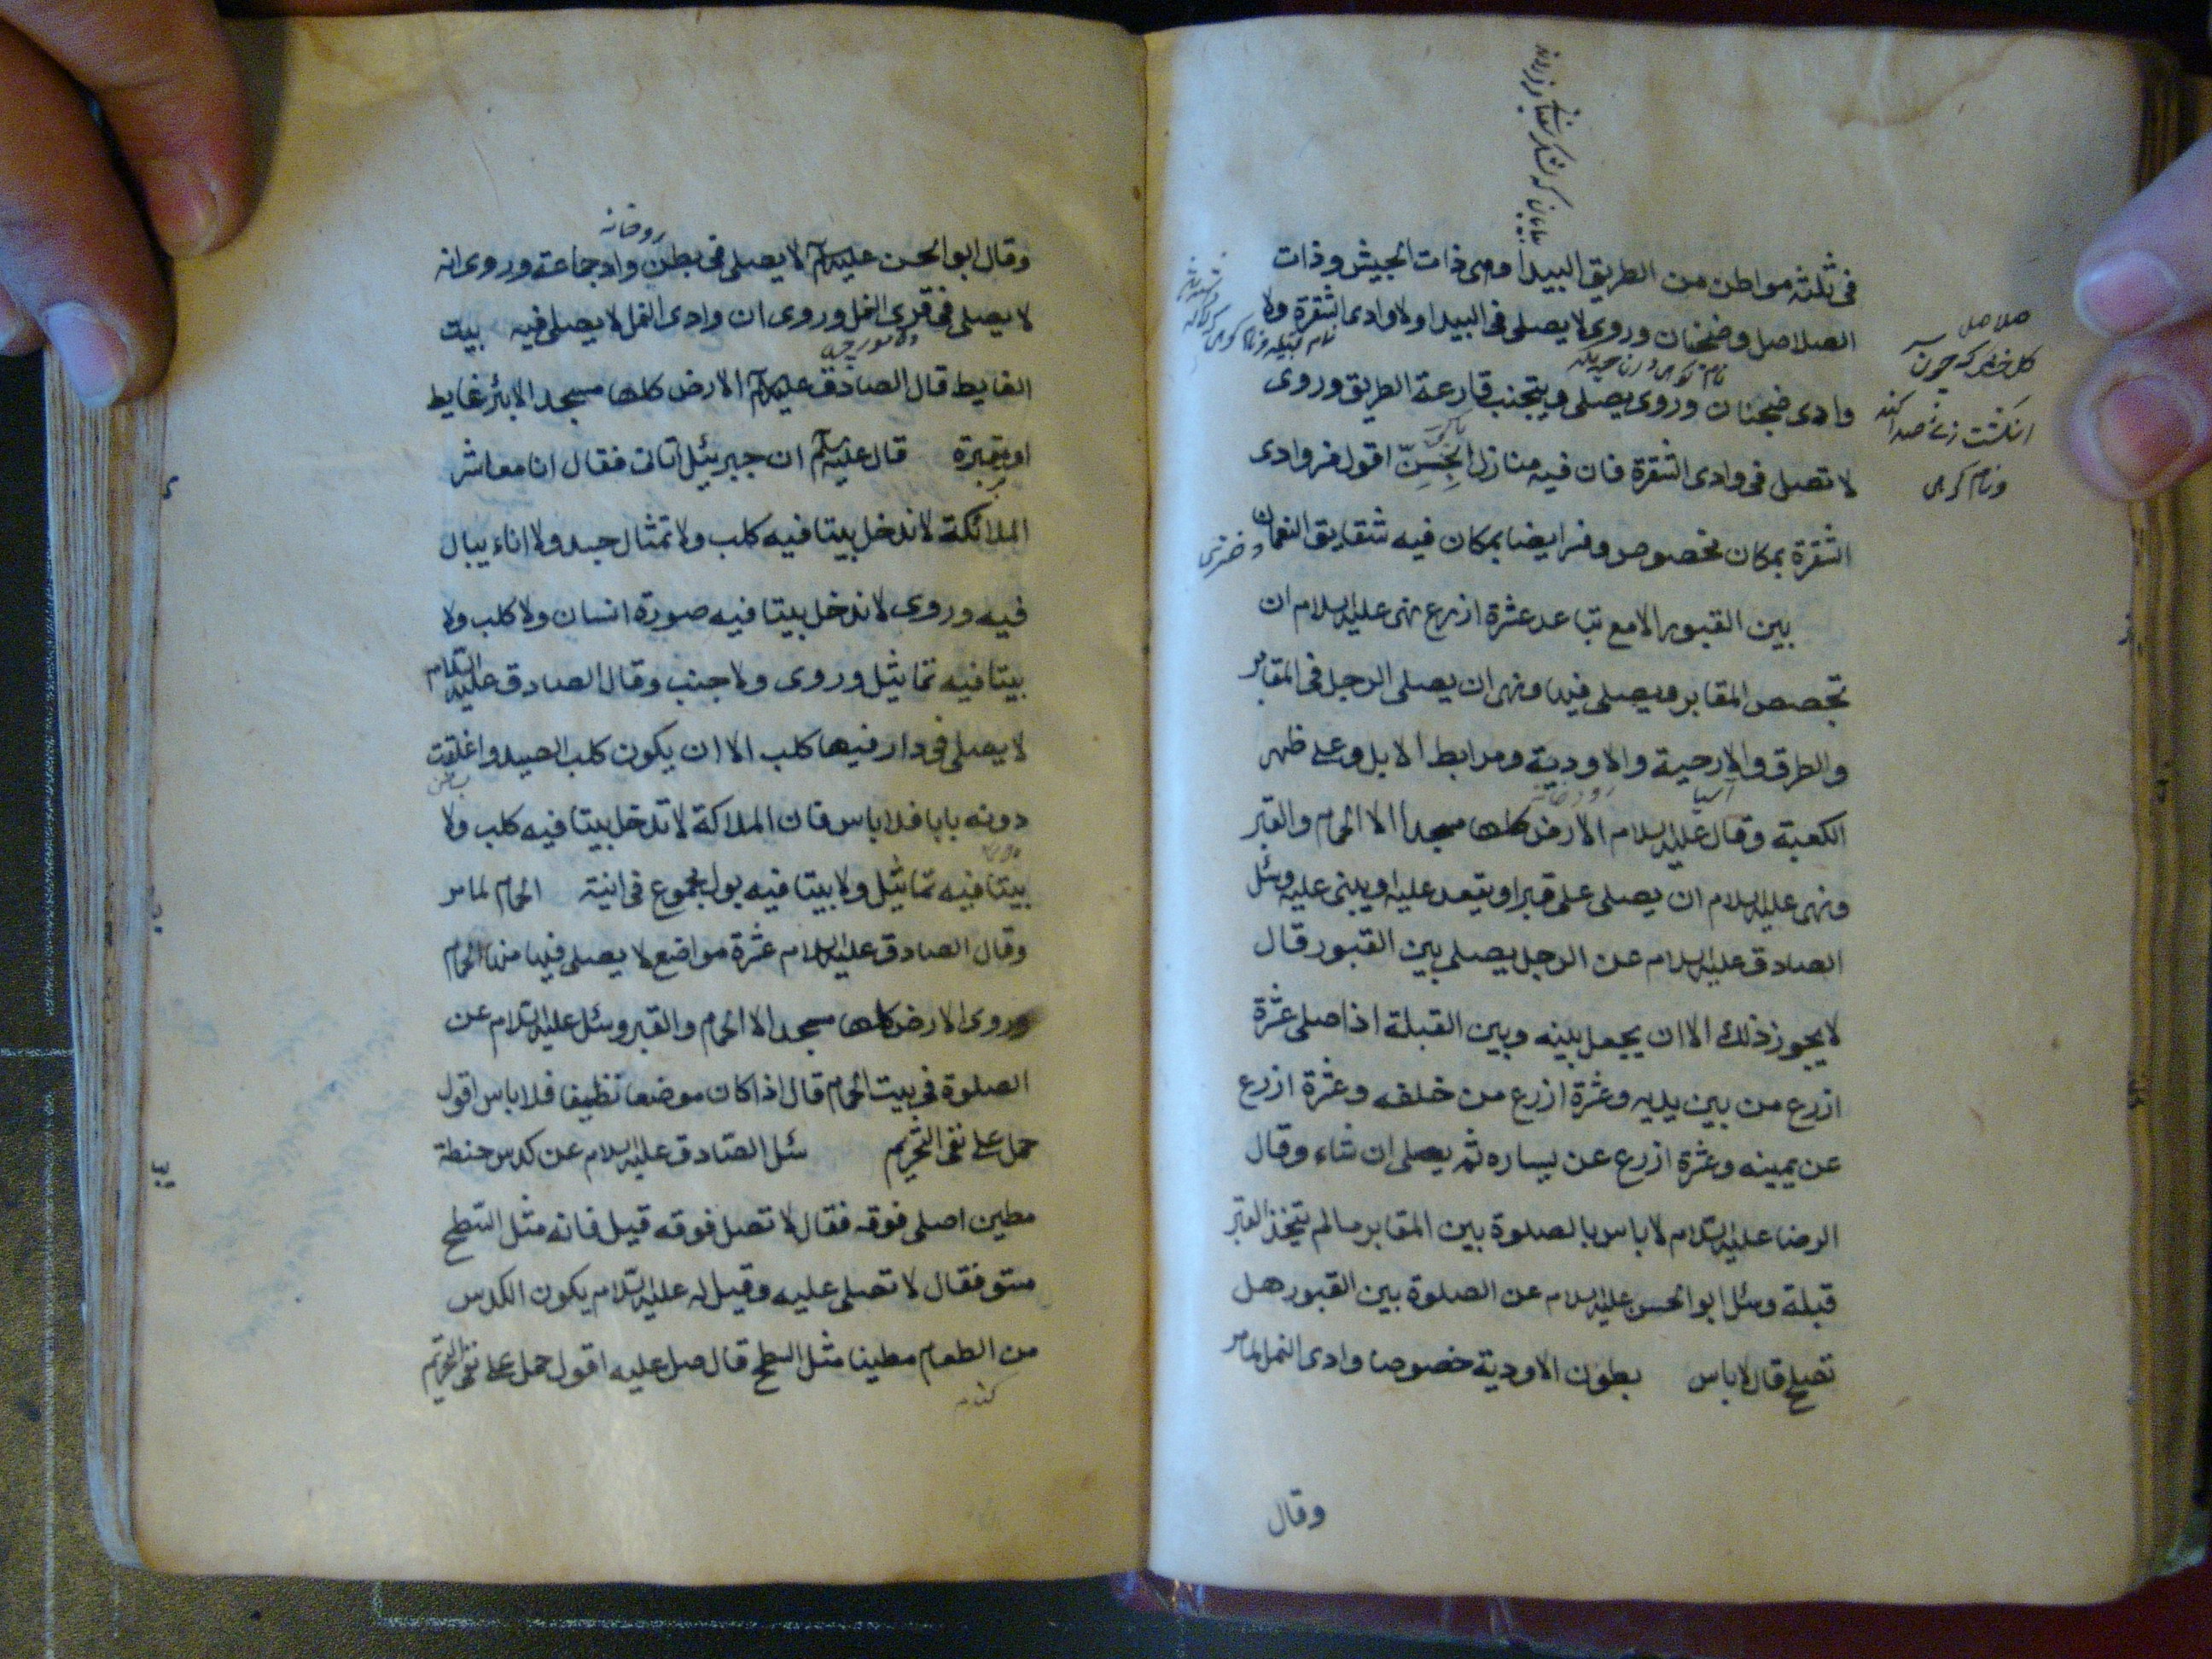 في ثلثه مواطن من الطريق البيدا وهي ذات الجيش وذات
الصلاصل وضجنان وروى لا يصلى في البيدا ولا وادى الشقرة ولا
وادى ضجنان وروى يصلى ويتجنب قارعة الطريق وروى
لا تصل في وادى الشقرة فان فيه منازل الجن اقول فسر وادى
الشقرة بمكان مخصوص وفسر ايضا بمكان فيه شقايق النعمان
بين القبور الا مع تباعد عشرة اذرع نهى عليه السلام ان
تجصص المقابر ويصلى فيها ونهى ان يصلى الرجل في المقابر
والطرق والارحية والاودية ومرابط الابل وعلى ظهر
آسيا رودخانه
الكعبة وقال عليه السلام الارض كلها مسجد الا الحمام والقبر
ونهى عليه السلام ان يصلى على قبر او يقعد عليه او يبنى عليه وسئل
الصادق عليه السلام عن الرجل يصلى بين القبور قال
لا يجوز ذلك الا ان يجعل بينه وبين القبلة اذا صلى عشرة
اذرع من بين يديه وعشرة اذرع من خلفه وعشرة اذرع
عن يمينه وعشرة اذرع عن يساره ثم يصلى ان شاء وقال
الرضا عليه السلام لا باس بالصلوة بين المقابر ما لم يتخذ القبر
قبلة وسئل ابو الحسن عليه السلام عن الصلوة بين القبور هل
تصلح قال لا باس بطون الاودية خصوصا وادى النمل لما مر
وقال
صلاصل
كل خشك كه چون
انكشت زنى صدا كند
ونام كوهى
رودخانه
وقال ابو الحسن عليه السلام لا يصلى في بطن واد جماعة وروى انه
لا يصلى في قرى النمل وروى ان وادى النمل لا يصلى فيه بيت
الغايط قال الصادق عليه السلام الارض كلها مسجد الا بئر غايط
او مقبرة قال عليه السلام ان جبرئيل اتانى فقال انا معاشر
الملائكة لا ندخل بيتا فيه كلب ولا تمثال جسد ولا اناء يبال
فيه وروى لا ندخل بيتا فيه صورة انسان ولا كلب ولا
بيتا فيه تماثيل وروى ولا جنب وقال الصادق عليه السلام
لا يصلى في دار فيها كلب الا ان يكون كلب الصيد واغلقت
دونه بابا فلا باس فان الملائكة لا تدخل بيتا فيه كلب ولا
بيتا فيه تماثيل ولا بيتا فيه بول مجموع في انية الحمام لما مر
وقال الصادق عليه السلام عشرة مواضع لا يصلى فيها منها الحمام
وروى الارض كلها مسجد الا الحمام والقبر وسئل عليه السلام عن
الصلوة في بيت الحمام قال اذا كان موضعا نظيفا فلا باس اقول
حمل على نفى التحريم سئل الصادق عليه السلام عن كدس حنطة
مطين اصلى فوقه فقال لا تصل فوقه قيل فانه مثل السطح
مستو فقال لا تصلى عليه وقيل له عليه السلام يكون الكدس
من الطعام مطينا مثل السطح قال صل عليه اقول حمل على نفى التحريم